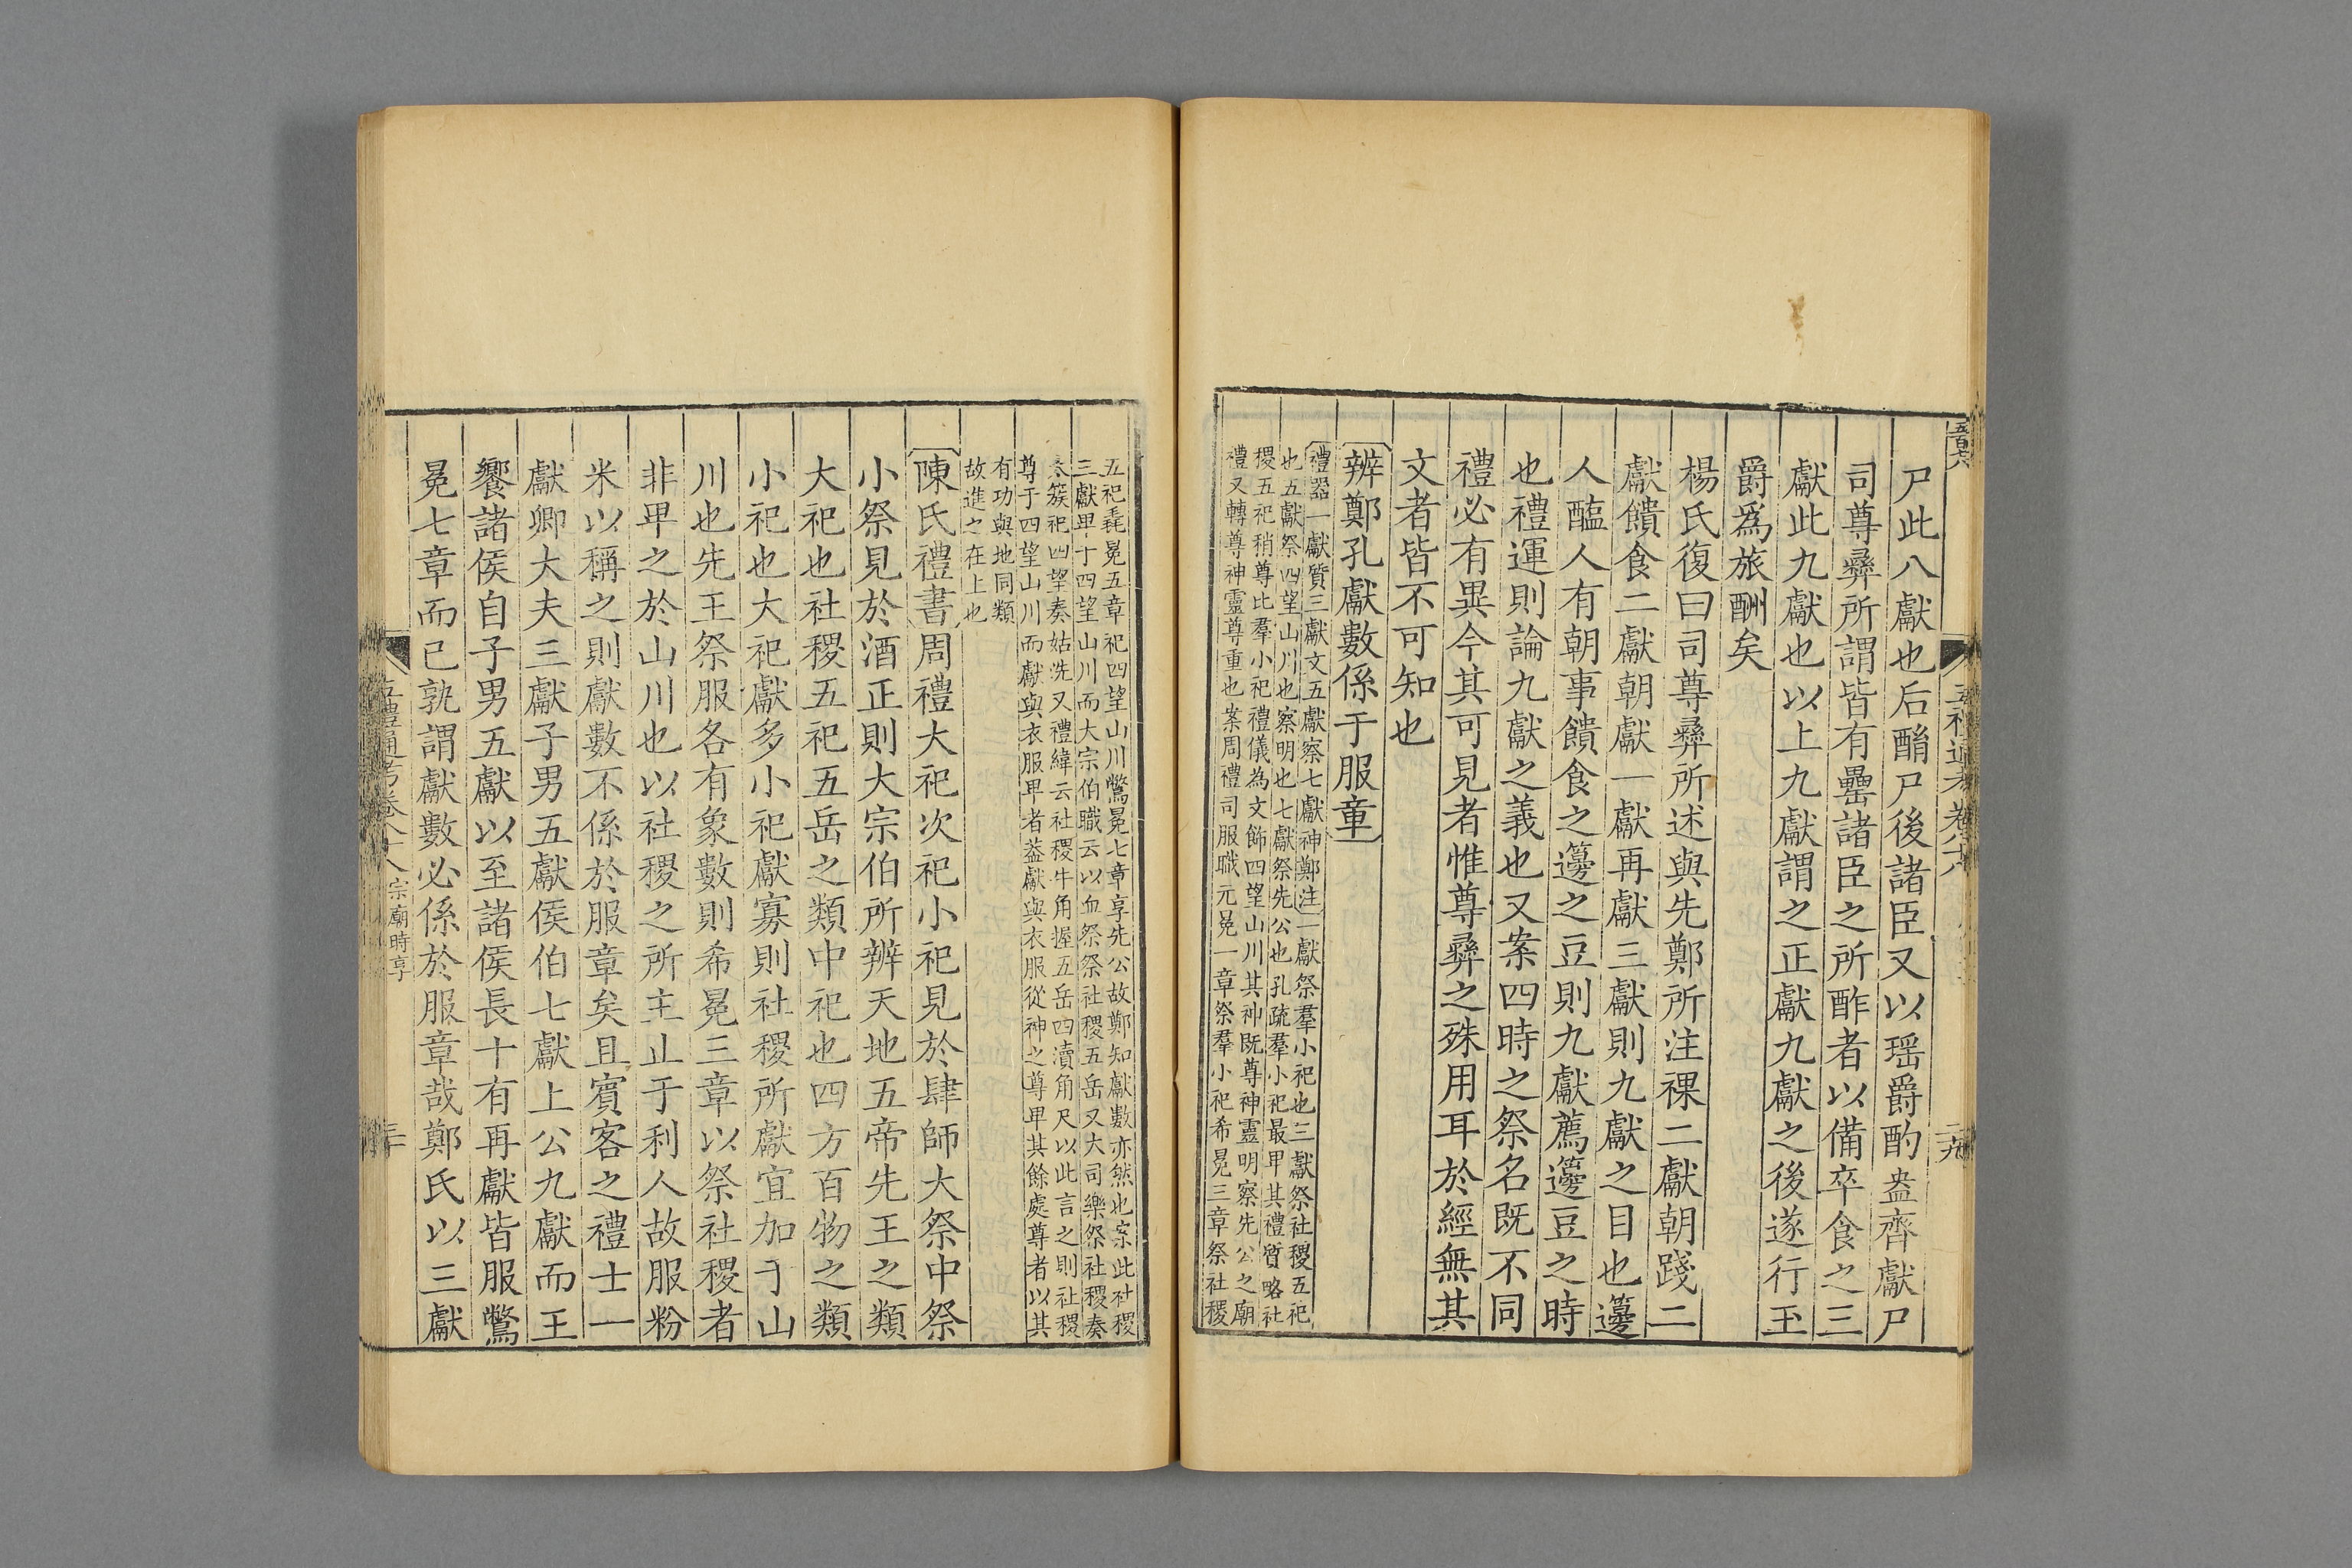 尸此八獻也后酳尸後諸臣又以瑶爵酌盎齊獻尸
司尊彝所謂皆有罍諸臣之所酢者以備卒食之三
獻此九獻也以上九獻謂之正獻九獻之後遂行玉
爵為旅酬矣
楊氏復曰司尊彝所述與先鄭所注祼二獻朝踐二
獻饋食二獻朝獻一獻再獻三獻則九獻之目也籩
人醢人有朝事饋食之籩之豆則九獻薦籩豆之時
也禮運則論九獻之義也又案四時之祭名既不同
禮必有異今其可見者惟尊彝之殊用耳於經無其
文者皆不可知也
辨鄭孔獻數係于服章
禮器一獻質三獻文五獻察七獻神鄭注一獻祭羣小祀也三獻祭社稷五祀
也五獻祭四望山川也察明也七獻祭先公也孔疏羣小祀最卑其禮質略社
稷五祀稍尊比羣小祀禮儀為文飾四望山川其神既尊神靈明察先公之廟
禮又轉尊神靈尊重也案周禮司服職元冕一章祭羣小祀希冕三章祭社稷
五祀毳冕五章祀四望山川鷩冕七章享先公故鄭知獻數亦然也案此社稷
三獻卑于四望山川而大宗伯職云以血祭祭社稷五岳又大司樂祭社稷奏
太簇祀四望奏姑洗又禮緯云社稷牛角握五岳四瀆角尺以此言之則社稷
尊于四望山川而獻與衣服卑者葢獻與衣服從神之尊卑其餘處尊者以其
有功與地同類
故進之在上也
陳氏禮書周禮大祀次祀小祀見於肆師大祭中祭
小祭見於酒正則大宗伯所辨天地五帝先王之類
大祀也社稷五祀五岳之類中祀也四方百物之類
小祀也大祀獻多小祀獻寡則社稷所獻宜加于山
川也先王祭服各有象數則希冕三章以祭社稷者
非卑之於山川也以社稷之所主止于利人故服粉
米以稱之則獻數不係於服章矣且賓客之禮士一
獻卿大夫三獻子男五獻侯伯七獻上公九獻而王
饗諸侯自子男五獻以至諸侯長十有再獻皆服鷩
冕七章而已孰謂獻數必係於服章哉鄭氏以三獻
五禮通考卷八十八 宗廟時享